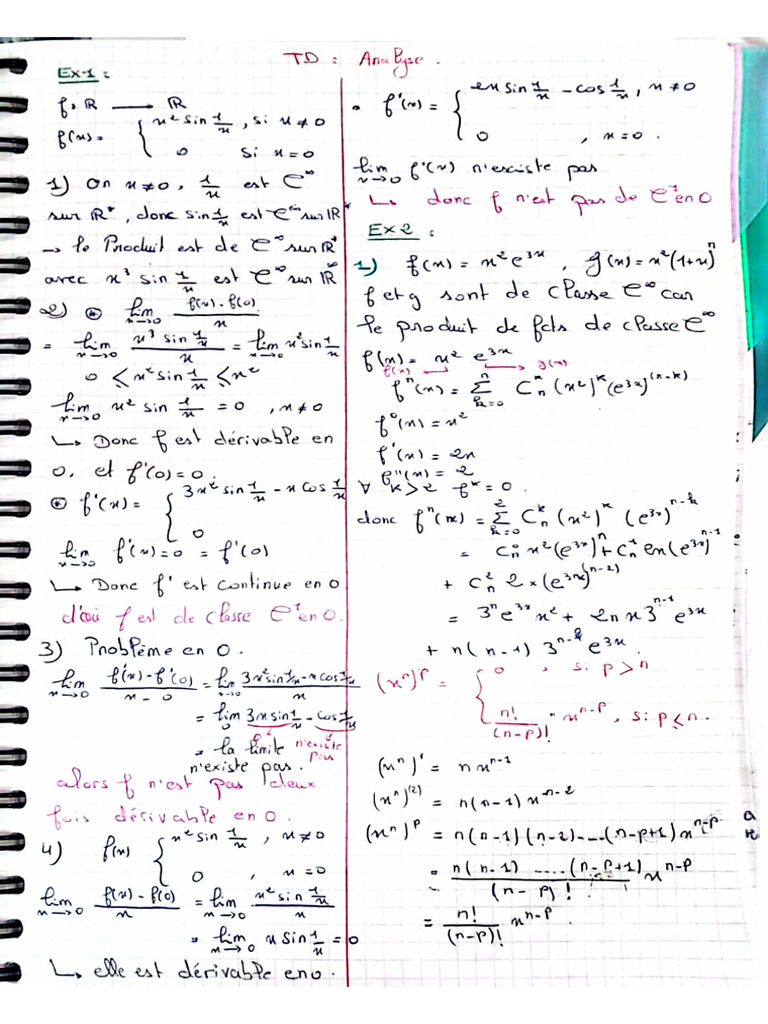 TD : Analyse.
Ex-1 :
f : ℝ ⟶ ℝ
f(x) = { x² sin 1/x , si x ≠ 0
0 si x = 0
1) On x ≠ 0, 1/x est C^∞
sur ℝ*, donc sin 1/x est C^∞ sur ℝ*
→ le Produit est de C^∞ sur ℝ*
avec x³ sin 1/x est C^∞ sur ℝ^∞
2) ⊛ lim_{x→0} (f(x) - f(0))/x
= lim_{x→0} (x³ sin 1/x)/x = lim_{x→0} x² sin 1/x
0 ⩽ x² sin 1/x ⩽ x²
lim_{x→0} x² sin 1/x = 0 , x ≠ 0
↳ Donc f est dérivable en
0, et f'(0) = 0.
⊛ f'(x) = { 3x² sin 1/x - x cos 1/x
0
lim_{x→0} f'(x) = 0 = f'(0)
↳ Donc f' est continue en 0
d'où f est de classe C¹ en 0.
3) Problème en 0.
lim_{x→0} (f'(x) - f'(0))/(x - 0) = lim_{x→0} (3x² sin 1/x - x cos 1/x)/x
= lim_0 3x sin 1/x - cos 1/x
= la limite n'existe pas
n'existe pas.
alors f n'est pas deux
fois dérivable en 0.
4) f(x) { x² sin 1/x , x ≠ 0
0 , x = 0
lim_{x→0} (f(x) - f(0))/x = lim_{x→0} (x² sin 1/x)/x
= lim_{x→0} x sin 1/x = 0
↳ elle est dérivable en 0.
• f'(x) = { 2x sin 1/x - cos 1/x , x ≠ 0
0 , x = 0.
lim_{x→0} f'(x) n'existe pas
↳ donc f n'est pas de C¹ en 0
Ex 2 :
1) f(x) = x² e^{3x} , g(x) = x² (1+x)^n
f et g sont de classe C^∞ car
le produit de fcts de classe C^∞
f(x) = x² e^{3x}
f(x) g(x)
f^n(x) = Σ_{k=0}^{n} C_n^k (x²)^k (e^{3x})^{(n-k)}
f^0(x) = x²
f'(x) = 2x
f''(x) = 2
∀ k > 2 f^k = 0.
donc f^n(x) = Σ_{k=0}^{2} C_n^k (x²)^k (e^{3x})^{n-k}
= C_n^0 x² (e^{3x})^n + C_n^1 2x (e^{3x})^{n-1}
+ C_n^2 2 × (e^{3x})^{(n-2)}
= 3^n e^{3x} x² + 2n x 3^{n-1} e^{3x}
+ n(n-1) 3^{n-2} e^{3x}.
(x^n)^p = { 0 , si p > n
n!/(n-p)! · x^{n-p} , si p ⩽ n.
(x^n)' = n x^{n-1}
(x^n)^{(2)} = n(n-1) x^{n-2}
(x^n)^p = n(n-1)(n-2)----(n-p+1) x^{n-p}
= (n(n-1) .....(n-p+1))/(n-p)! x^{n-p}
= n!/(n-p)! x^{n-p}.